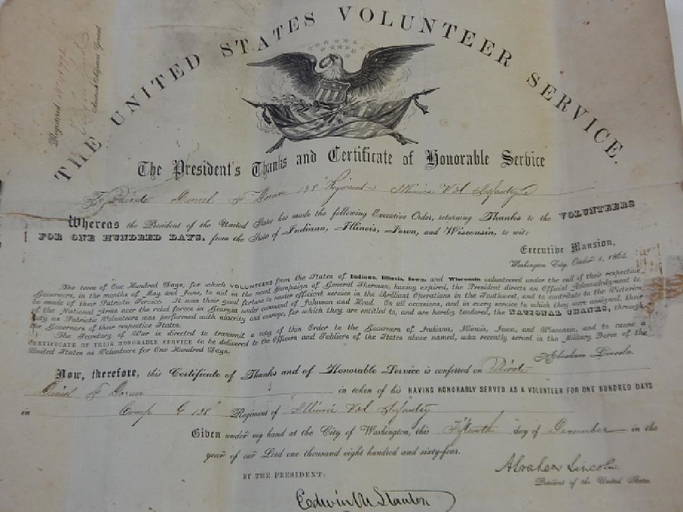 THE UNITED STATES VOLUNTEER SERVICE.
The President's Thanks and Certificate of Honorable Service
To Private F Regiment Illinois Vol Infantry
Whereas the President of the United States has made the following Executive Order, returning Thanks to the VOLUNTEERS
FOR ONE HUNDRED DAYS, from the States of Indiana, Illinois, Iowa, and Wisconsin, to wit:
Executive Mansion,
Washington City, October 1, 1864.
The term of One Hundred Days, for which VOLUNTEERS from the States of Indiana, Illinois, Iowa, and Wisconsin volunteered under the call of their respective
Governors, in the months of May and June, to aid in the Campaign of General Sherman, having expired, the President directs an Official Acknowledgment to
be made of their Patriotic Service. It was their good fortune to render efficient service in the Brilliant Operations in the Southwest, and to contribute to the Victories
of the National Arms over the rebel forces in Georgia under command of Johnston and Hood. On all occasions, and in every service to which they were assigned, their
duty as Patriotic Volunteers was performed with alacrity and courage, for which they are entitled to, and are hereby tendered, the NATIONAL THANKS, through
the Governors of their respective States.
The Secretary of War is directed to transmit a copy of this Order to the Governors of Indiana, Illinois, Iowa, and Wisconsin, and to cause a
CERTIFICATE OF THEIR HONORABLE SERVICE to be delivered to the Officers and Soldiers of the States above named, who recently served in the Military Force of the
United States as Volunteers for One Hundred Days.
Abraham Lincoln.
Now, therefore, this Certificate of Thanks and of Honorable Service is conferred on Private
F in token of his HAVING HONORABLY SERVED AS A VOLUNTEER FOR ONE HUNDRED DAYS
in Comp G 138th Regiment of Illinois Vol Infantry
Given under my hand at the City of Washington, this Fifteenth day of December in the
year of our Lord one thousand eight hundred and sixty-four.
Abraham Lincoln
President of the United States
BY THE PRESIDENT:
Edwin M Stanton
Registered
Assistant Adjutant General